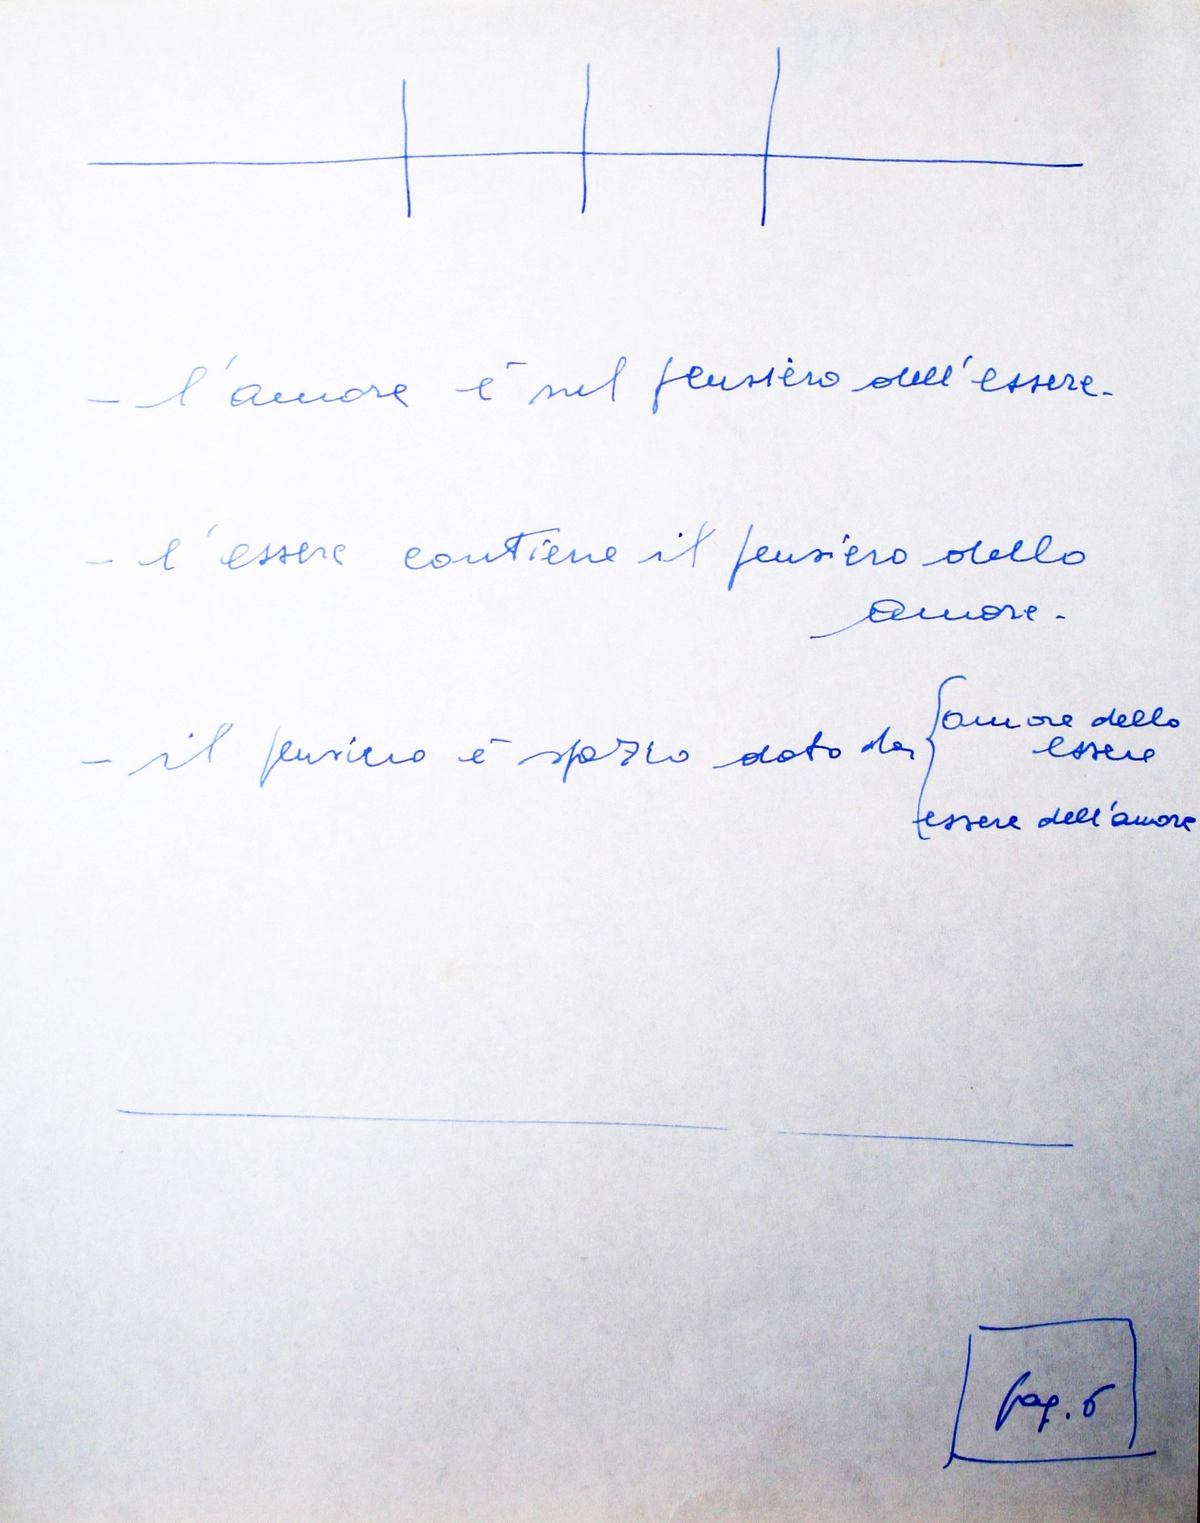 - l'amore è nel pensiero dell'essere.
- l'essere contiene il pensiero dello
amore.
- il pensiero è spazio dato da { amore dello
essere
essere dell'amore
pag. 6